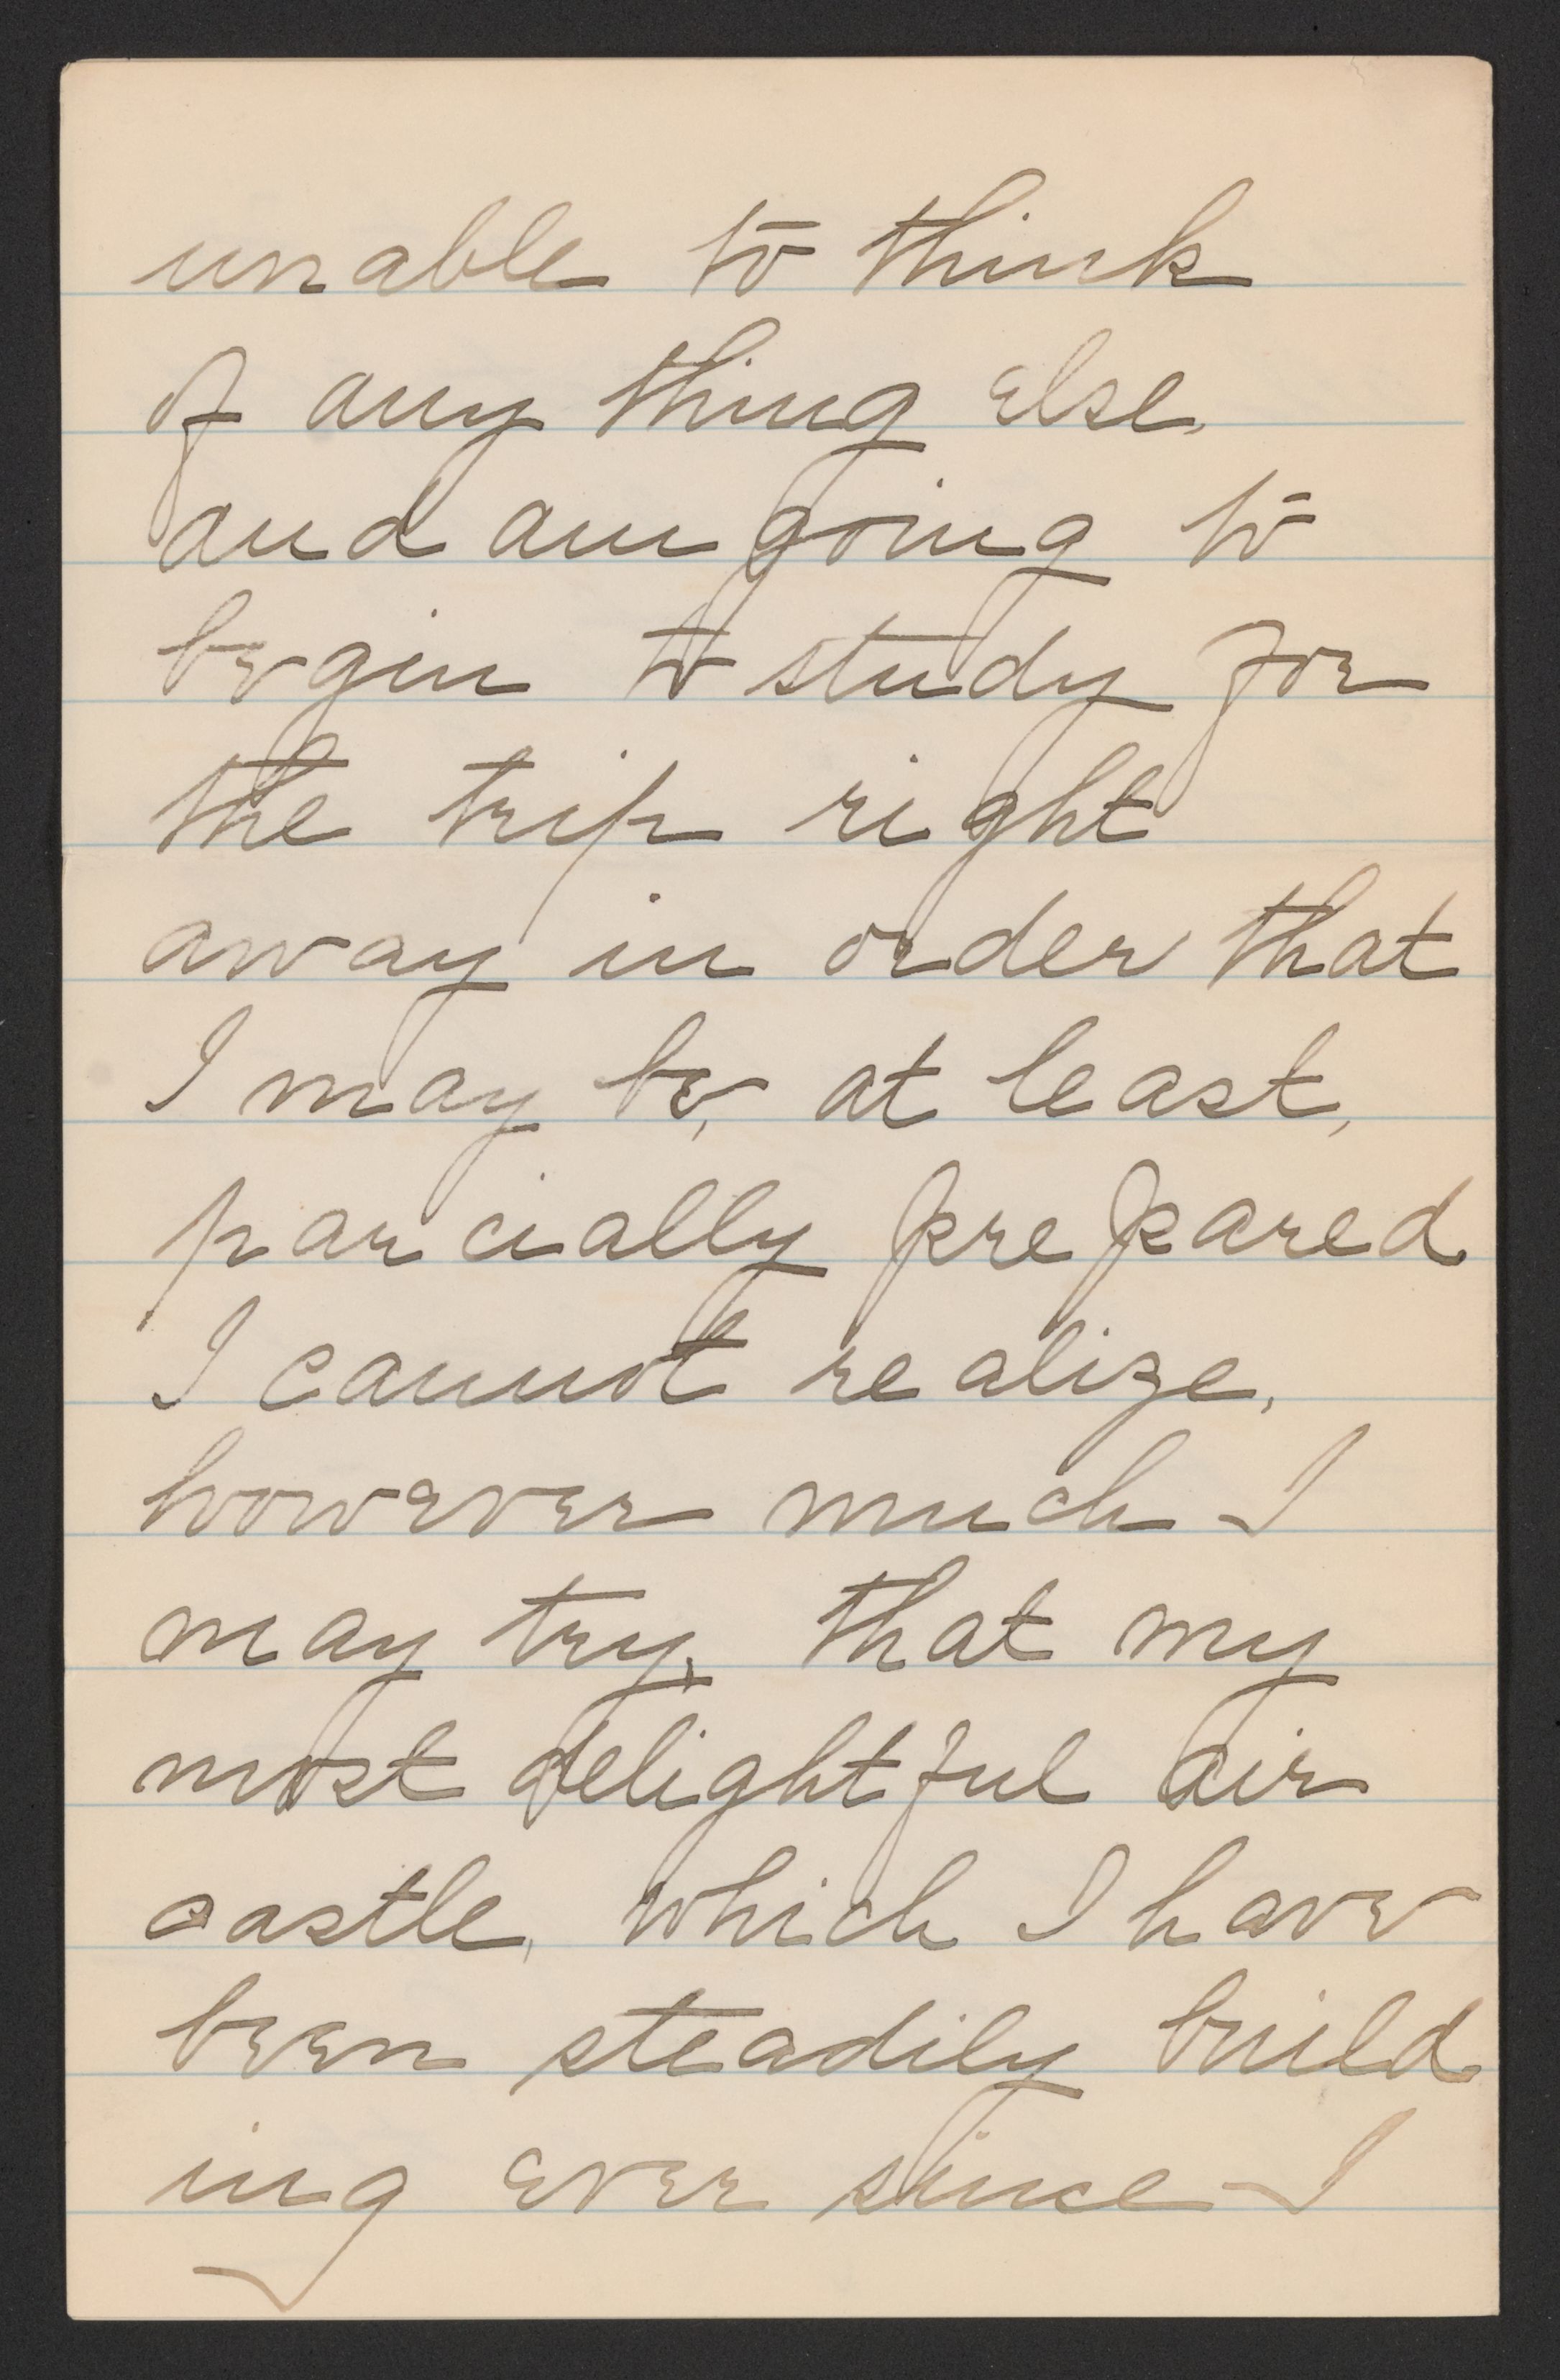 unable to think
of any thing else,
and am going to
begin to study for
the trip right
away in order that
I may be, at least,
parcially prepared
I cannot realize,
however much I
may try, that my
most delightful air
castle, which I have
been steadily build
ing ever since I